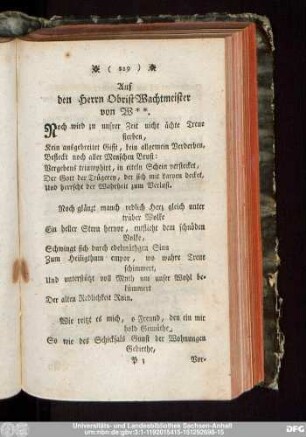 ( 229 )
Auf
den Herrn Obrist-Wachtmeister
von W**.
Noch wird zu unsrer Zeit nicht ächte Treue
sterben,
Kein ausgebreitet Gift, kein allgemein Verderben,
Befleckt noch aller Menschen Brust:
Vergebens triumphiret, in eiteln Schein verstecket,
Der Gott der Trügerey, der sich mit darven decket,
Und herrscht der Wahrheit zum Verlust.
Noch glänzt manch redlich Herz gleich unter
trüber Wolke
Ein heller Stern hervor, entflieht dem schnöden
Volke,
Schwingt sich durch edelmüthgen Sinn
Zum Heiligthum empor, wo wahre Treue
schimmert,
Und unterstützt voll Muth um unser Wohl be-
kümmert
Der alten Redlichkeit Ruin.
Wie reitzt es mich, o Freund, den ein mir
hold Gemüthe,
So wie des Schicksals Gunst der Wohnungen
Gebiethe,
P 3
Vor-
Universitäts- und Landesbibliothek Sachsen-Anhalt
urn:nbn:de:gbv:3:1-1192015415-161292598-15